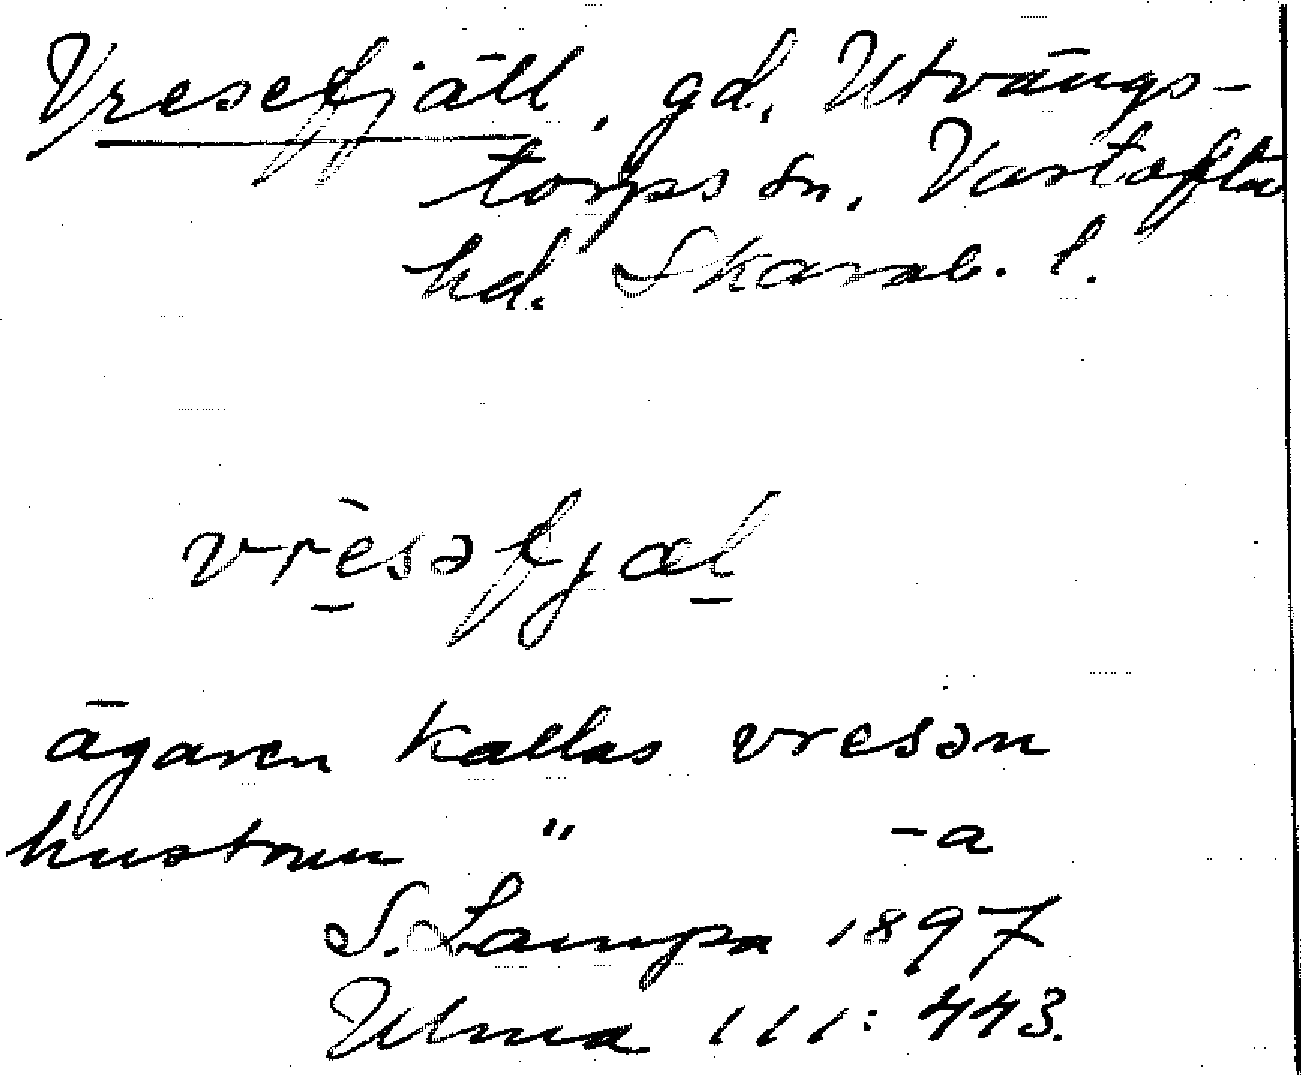 Vresefjäll, gd, Utvängs-
torps sn. Vartofta
hd. Skarab. l.
vrèsəfjæl
ägaren kallas vresən
hustrun " -a
S. Lampa 1897
Ulma 111:443.